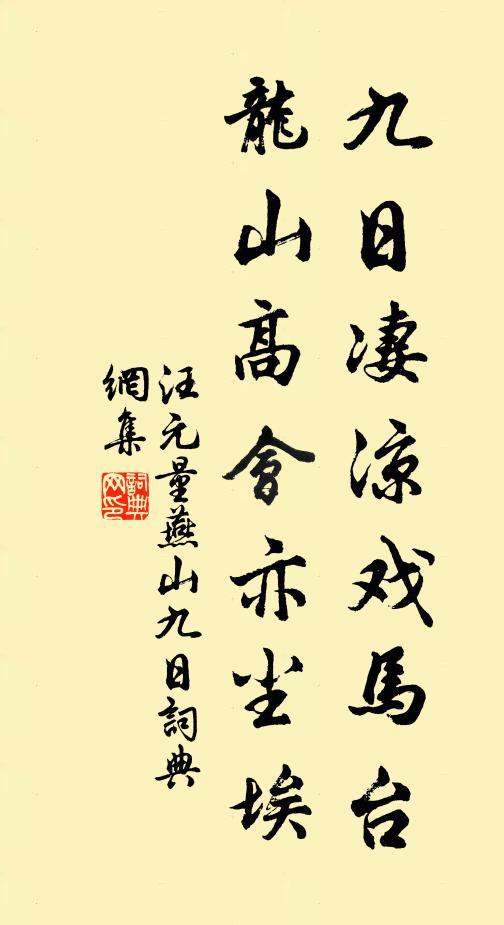 九日凄涼戏馬台
龍山高會亦尘埃
汪元量燕山九日詞典
網集
詞典网印